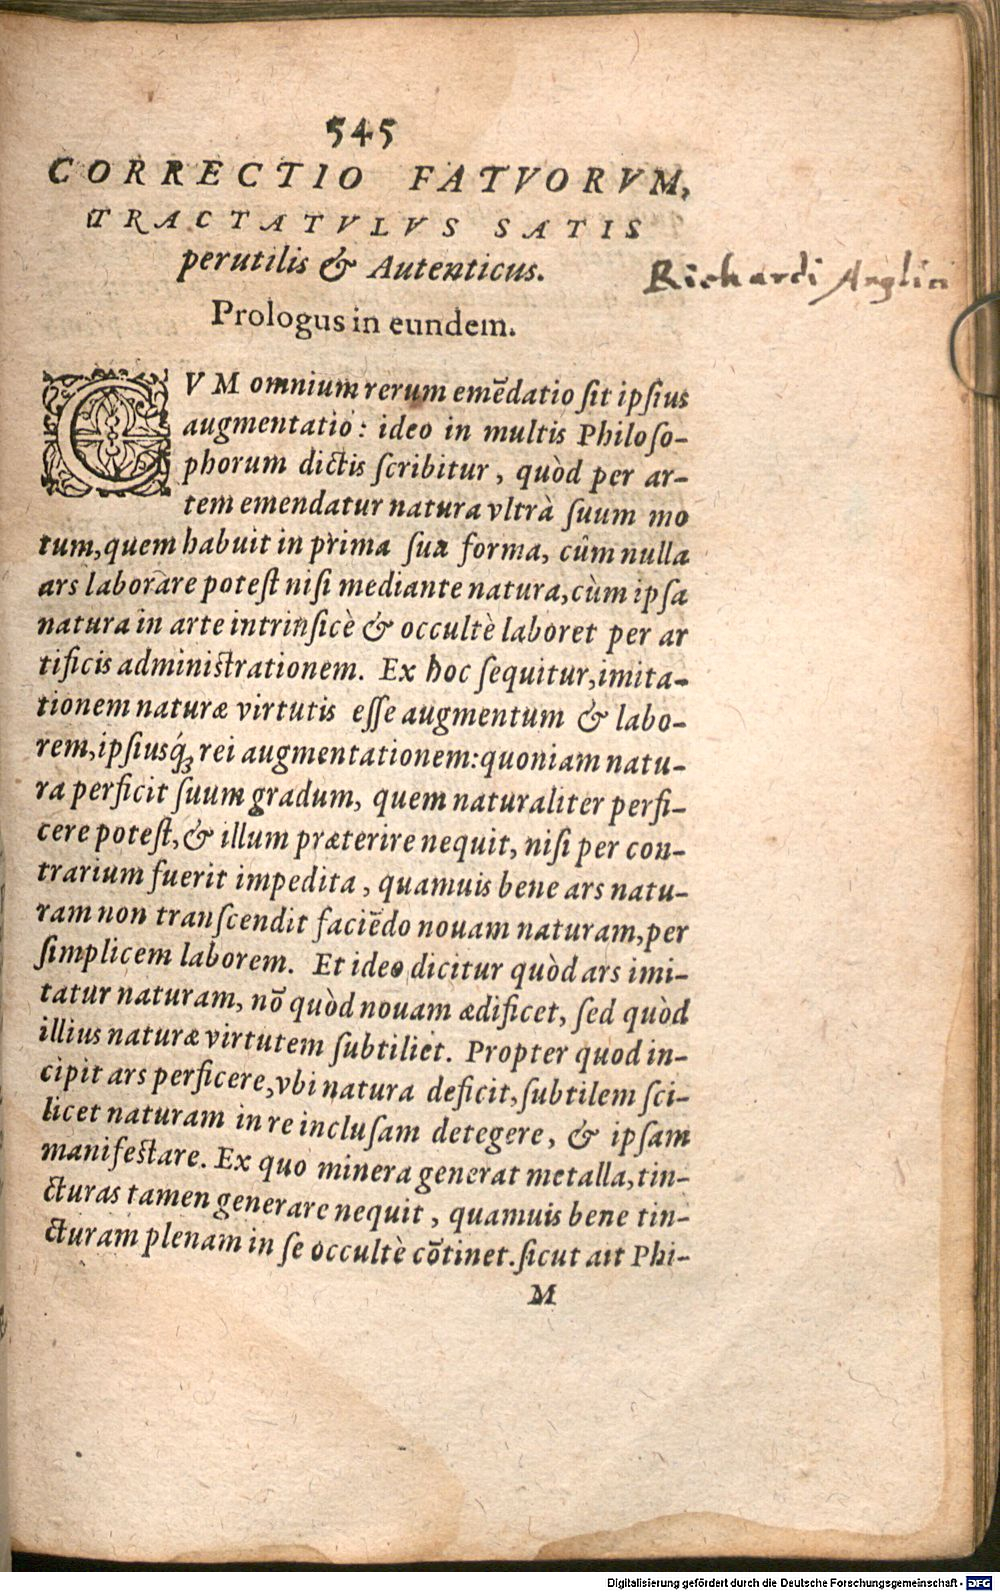 545
CORRECTIO FATVORVM,
TRACTATVLVS SATIS
perutilis & Autenticus.
Richardi Anglici
Prologus in eundem.
CVM omnium rerum emēdatio ſit ipſius
augmentatio: ideo in multis Philoſo-
phorum dictis ſcribitur, quòd per ar-
tem emendatur natura vltrà ſuum mo
tum, quem habuit in prima ſua forma, cûm nulla
ars laborare poteſt niſi mediante natura, cùm ipſa
natura in arte intrinſicè & occultè laboret per ar
tificis adminiſtrationem. Ex hoc ſequitur, imita-
tionem naturæ virtutis eſſe augmentum & labo-
rem, ipſiusq́ꝫ rei augmentationem: quoniam natu-
ra perficit ſuum gradum, quem naturaliter perfi-
cere poteſt, & illum præterire nequit, niſi per con-
trarium fuerit impedita, quamuis bene ars natu-
ram non tranſcendit faciēdo nouam naturam, per
ſimplicem laborem. Et ideo dicitur quòd ars imi-
tatur naturam, nō quòd nouam ædificet, ſed quòd
illius naturæ virtutem ſubtiliet. Propter quod in-
cipit ars perficere, vbi natura deficit, ſubtilem ſci-
licet naturam in re incluſam detegere, & ipſam
manifeſtare. Ex quo minera generat metalla, tin-
cturas tamen generare nequit, quamuis bene tin-
cturam plenam in ſe occultè cōtinet. ſicut ait Phi-
M
Digitalisierung gefördert durch die Deutsche Forschungsgemeinschaft - DFG